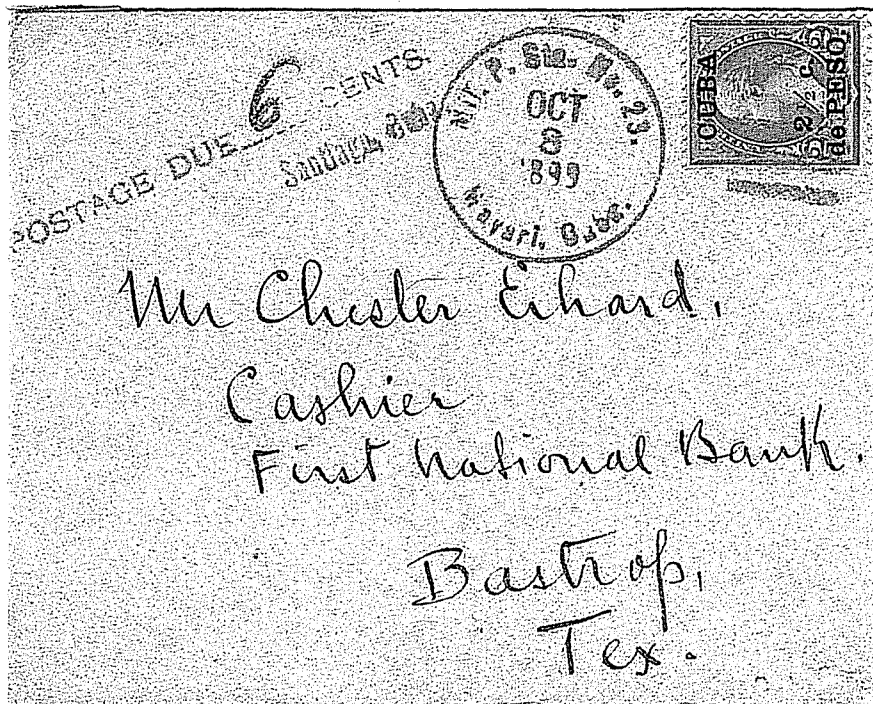 POSTAGE DUE 6 CENTS.
Santiago, Cuba
Mil. P. Sta. No. 23.
OCT
8
1899
Mayari, Cuba.
CUBA
2 ½ c.
de PESO.
Mr Chester Erhard,
Cashier
First National Bank.
Bastrop,
Tex.